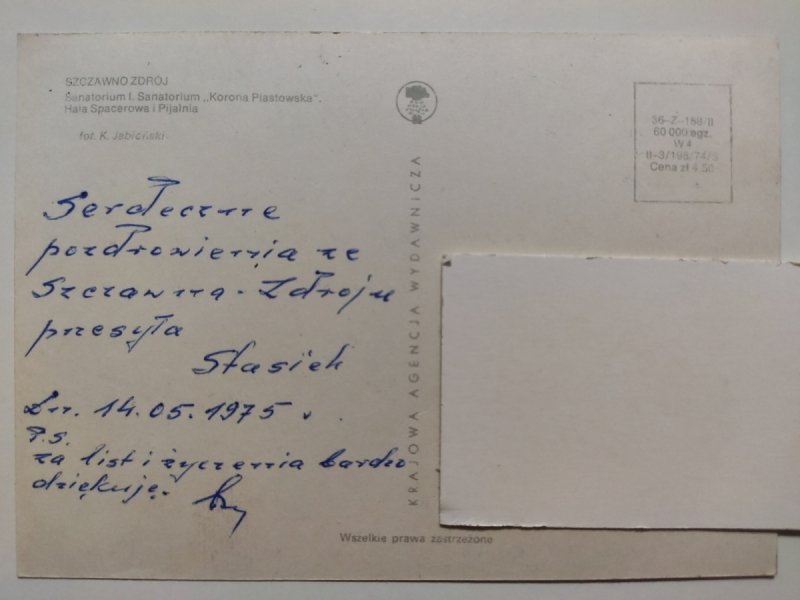 SZCZAWNO ZDRÓJ
Sanatorium I. Sanatorium „Korona Piastowska".
Hala Spacerowa i Pijalnia
fot. K. Jabłoński
Serdeczne
pozdrowienia ze
Szczawna-Zdroju
przesyła
Stasiek
Dn. 14.05.1975.
P.S.
za list i życzenia bardzo
dziękuję.
KRAJOWA AGENCJA WYDAWNICZA
36-Z-158/II
60 000 egz.
W4
II-3/198/74/5
Cena zł 4,50
Wszelkie prawa zastrzeżone